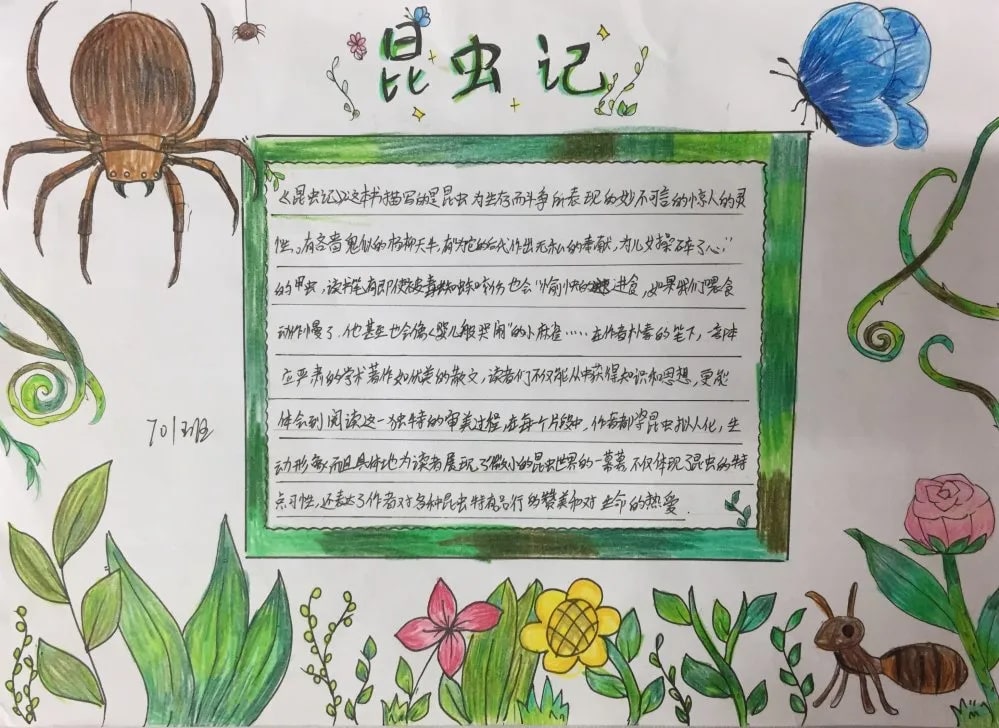 昆虫记
《昆虫记》这本书描写的是昆虫为生存而斗争所表现的妙不可言的惊人的灵
性。有吝啬鬼似的杨柳天牛,有为它的后代作出无私的奉献,为儿女操碎了心"
的甲虫,读书笔有即使被毒蜘蛛刺伤也会"愉快的进食,如果我们喂食
动作慢了,他甚至也会像《婴儿般哭闹"的小麻雀……在作者朴素的笔下,一本
应严肃的学术著作如优美的散文,读者们不仅能从中获得知识和思想,更能
体会到阅读这一独特的审美过程,在每个片段中,作者都将昆虫拟人化,生
动形象而且具体地为读者展现了微小的昆虫世界的一幕幕不仅体现了昆虫的特
点习性,还表达了作者对各种昆虫特有品行的赞美和对生命的热爱.
701班